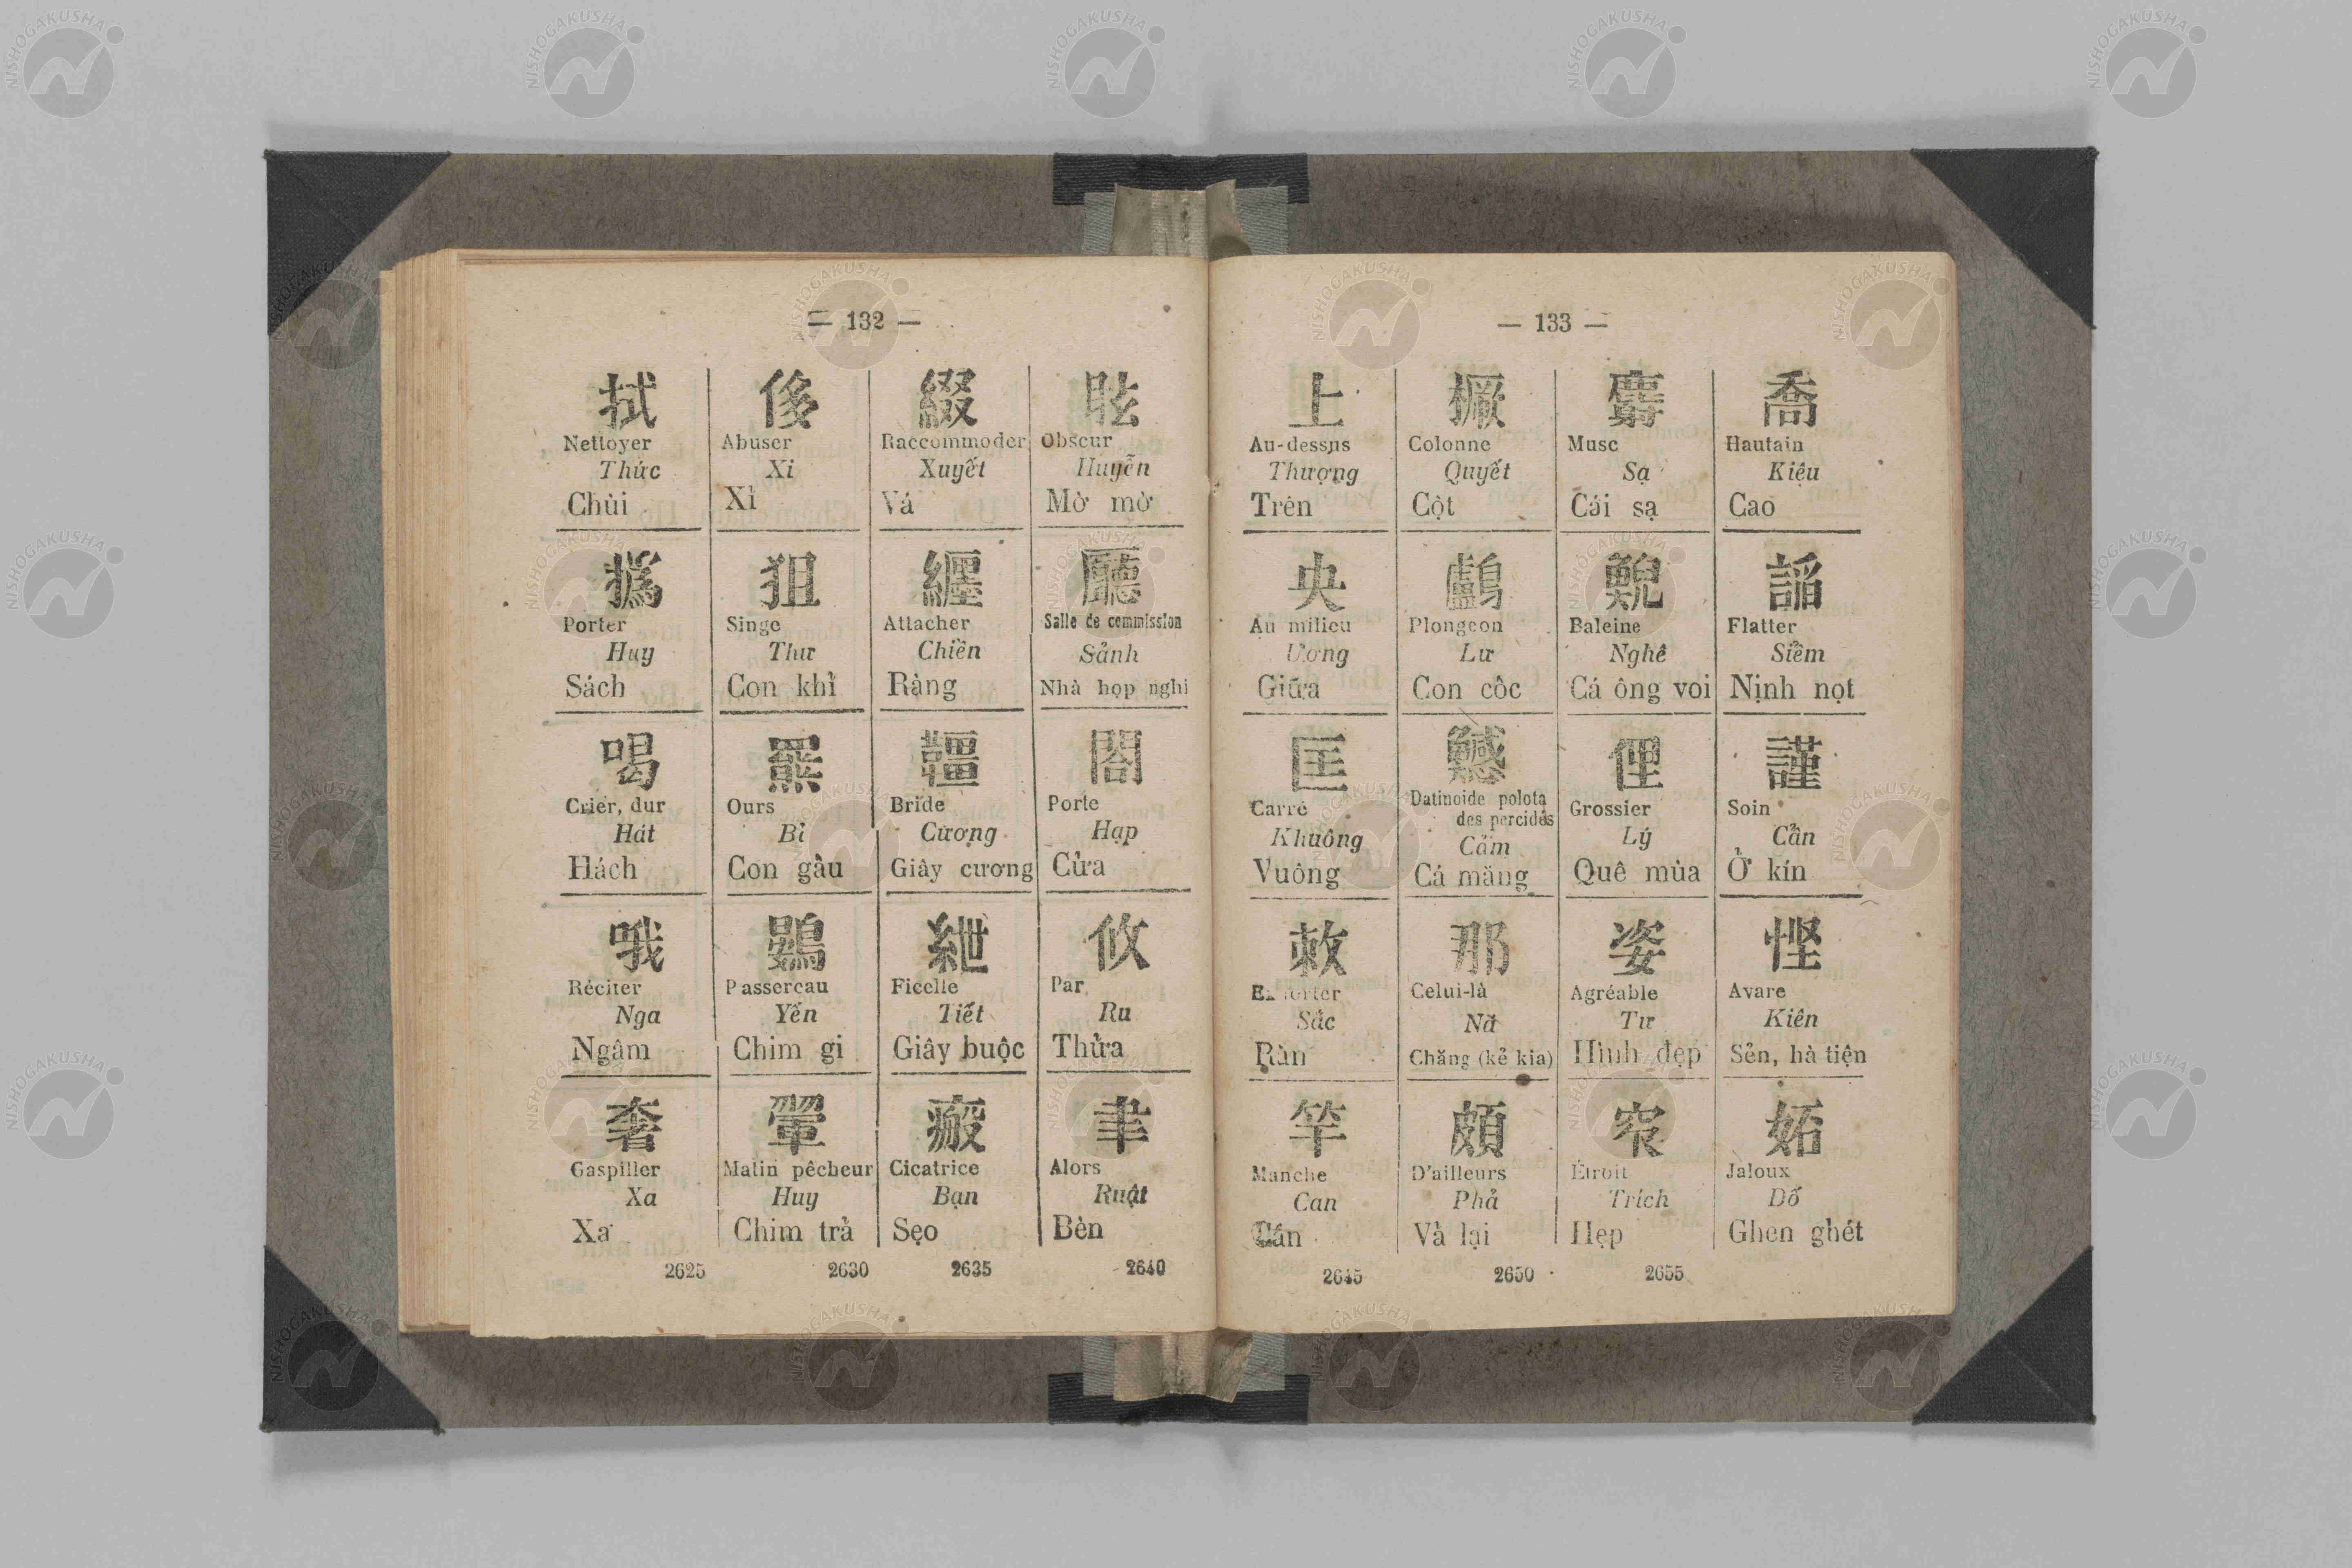 — 132 —
拭
Nettoyer
Thức
Chùi
撝
Porter
Huy
Sách
喝
Crier, dur
Hát
Hách
哦
Réciter
Nga
Ngâm
奢
Gaspiller
Xa
Xa
2625
侈
Abuser
Xi
Xỉ
狙
Singe
Thư
Con khỉ
羆
Ours
Bi
Con gấu
鷃
Passereau
Yến
Chim gi
翬
Matin pêcheur
Huy
Chim trả
2630
綴
Raccommoder
Xuyết
Vá
纏
Attacher
Chiền
Ràng
韁
Bride
Cương
Giây cương
紲
Ficelle
Tiết
Giây buộc
瘢
Cicatrice
Bạn
Sẹo
2635
眩
Obscur
Huyễn
Mờ mờ
廳
Salle de commission
Sảnh
Nhà họp nghị
閤
Porte
Hạp
Cửa
攸
Par
Ru
Thửa
聿
Alors
Ruật
Bèn
2640
— 133 —
上
Au-dessus
Thượng
Trên
央
Au milieu
Ương
Giữa
匡
Carré
Khuông
Vuông
敕
Sắc
Răn
竿
Manche
Can
Cần
2645
橛
Colonne
Quyết
Cột
鸕
Plongeon
Lư
Con cốc
鱤
Datinoide polota
des percidés
Cảm
Cá măng
那
Celui-là
Nă
Chăng (kẻ kia)
頗
D'ailleurs
Phả
Vả lại
2650
麝
Musc
Sạ
Cái sạ
鯢
Baleine
Nghê
Cá ông voi
俚
Grossier
Lý
Quê mùa
姿
Agréable
Tư
Hình đẹp
窄
Étroit
Trích
Hẹp
2655
喬
Hautain
Kiệu
Cao
謟
Flatter
Siểm
Nịnh nọt
謹
Soin
Cẩn
Ở kín
慳
Avare
Kiên
Sẻn, hà tiện
妬
Jaloux
Đố
Ghen ghét
NISHOGAKUSHA